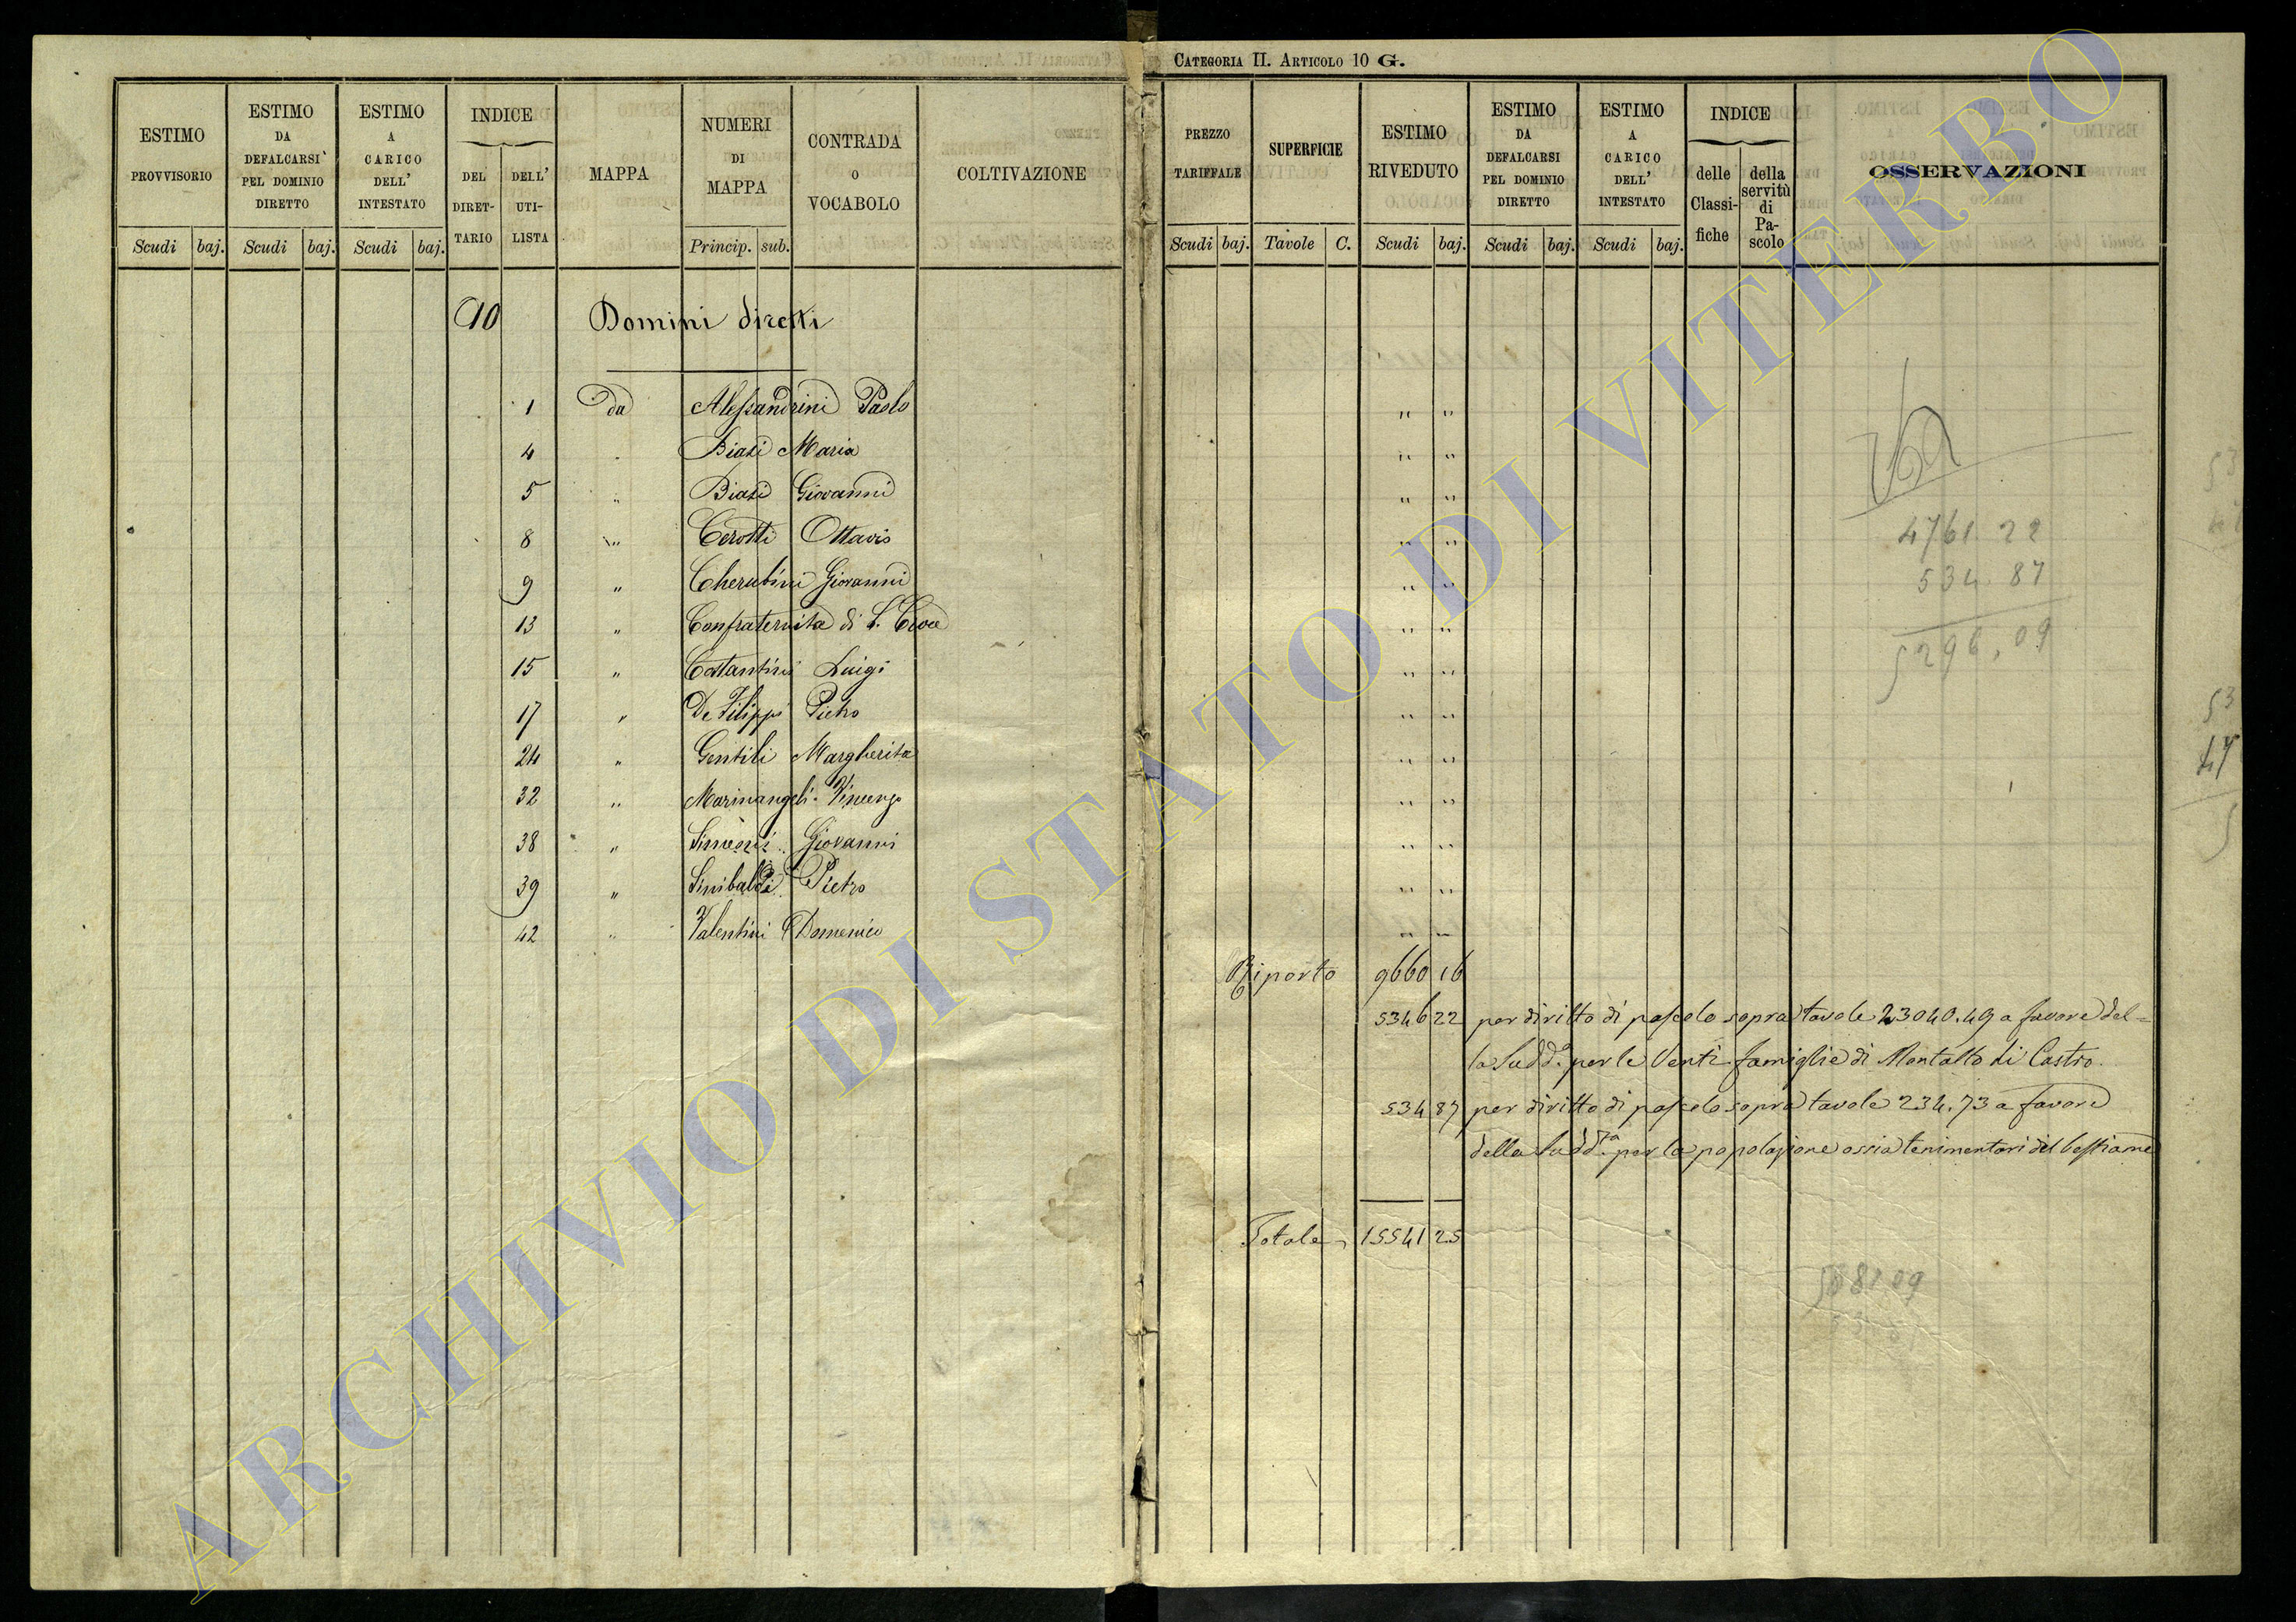 CATEGORIA II. ARTICOLO 10 G.
ESTIMO PROVVISORIO Scudi baj.
ESTIMO DA DEFALCARSI PEL DOMINIO DIRETTO Scudi baj.
ESTIMO A CARICO DELL' INTESTATO Scudi baj.
INDICE DEL DIRETTARIO DELL' UTILISTA
MAPPA
NUMERI DI MAPPA Princip. sub.
CONTRADA O VOCABOLO
COLTIVAZIONE
PREZZO TARIFFALE Scudi baj.
SUPERFICIE Tavole C.
ESTIMO RIVEDUTO Scudi baj.
ESTIMO DA DEFALCARSI PEL DOMINIO DIRETTO Scudi baj.
ESTIMO A CARICO DELL' INTESTATO Scudi baj.
INDICE delle Classifiche della servitù di Pascolo
OSSERVAZIONI
10 Domini diretti
1 da Alessandrini Paolo " "
4 " Biasi Maria " "
5 " Biasi Giovanni " "
8 " Cerotti Ottavio " "
9 " Cherubini Giovanni " "
13 " Confraternita di S. Croce " "
15 " Costantini Luigi " "
17 " De Filippi Pietro " "
24 " Gentili Margherita " "
32 " Marinangeli Vincenzo " "
38 " Simeoni Giovanni " "
39 " Sinibaldi Pietro " "
42 " Valentini Domenico " "
4761.22
534.87
5296,09
Riporto 9660 16
5346 22 per diritto di pascolo sopra tavole 23040.49 a favore del=
la Sudd.a per le Venti famiglie di Montalto di Castro.
534 87 per diritto di pascolo sopra tavole 234.73 a favore
della Sudd.ta per la popolazione ossia tenimentari del bestiame
Totale 15541 25
ARCHIVIO DI STATO DI VITERBO